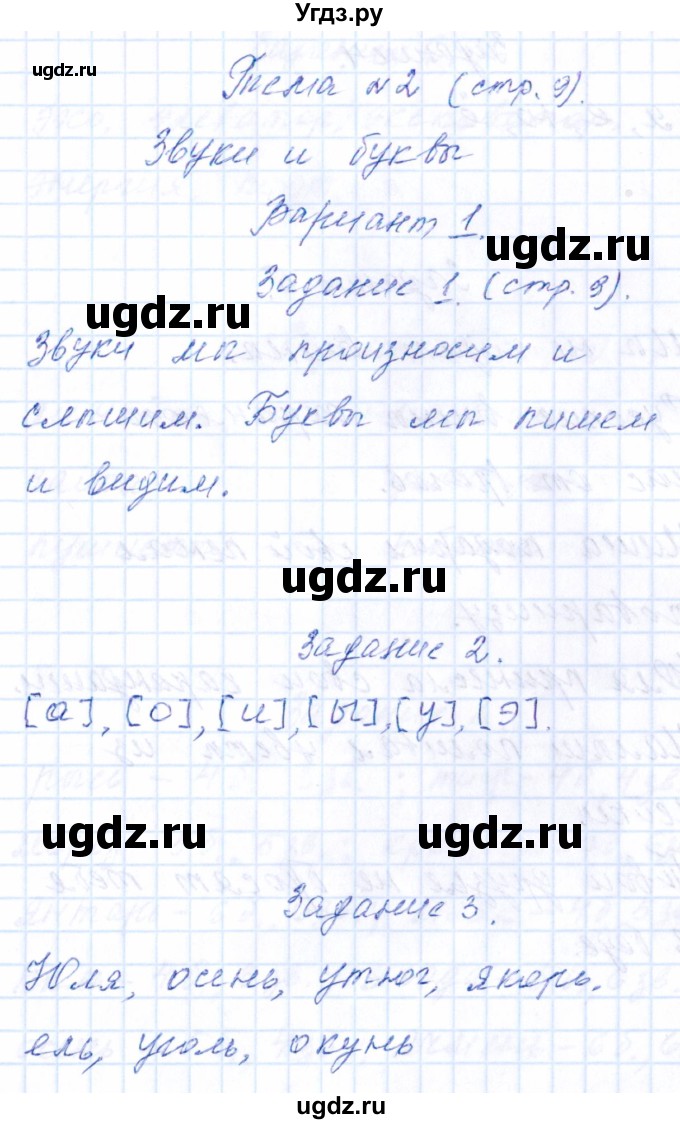 Угдз.ру
ugdz.ru
Тема №2 (стр. 9).
Звуки и буквы
Вариант 1.
ugdz.ru
Задание 1. (стр. 9).
ugdz.ru
Звуки мы произносим и
слышим. Буквы мы пишем
и видим.
ugdz.ru
Задание 2.
[а], [о], [и], [ы], [у], [э].
ugdz.ru ugdz.ru
Задание 3.
Юля, осень, утюг, якорь.
ель, уголь, окунь
ugdz.ru